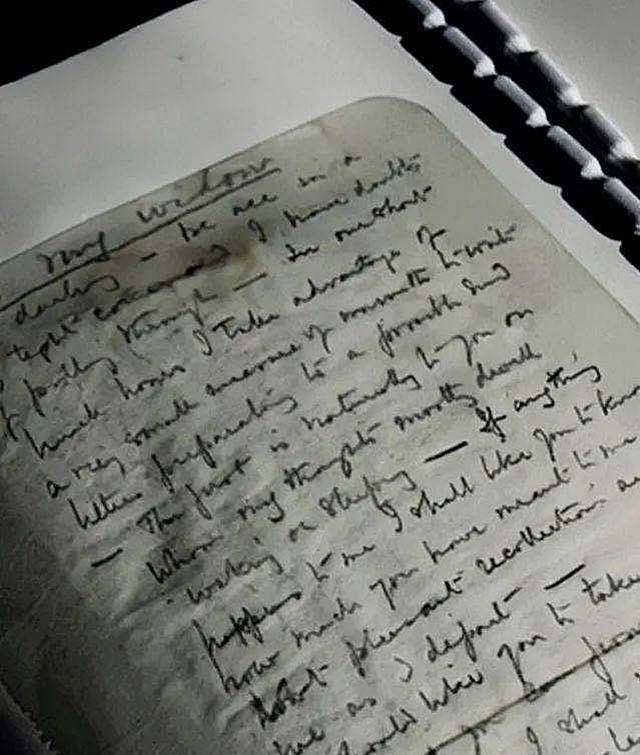 my widow
darling – we are in a
tight corner and I have doubts
of pulling through – In our short
lunch hours I take advantage of
a very small measure of warmth to write
letters preparatory to a possible end
— The first is naturally to you on
whom my thoughts mostly dwell
waking or sleeping — If anything
happens to me I shall like you to know
how much you have meant to me
that pleasant recollections are
me as I depart —
should like you to take
you can from
I shall